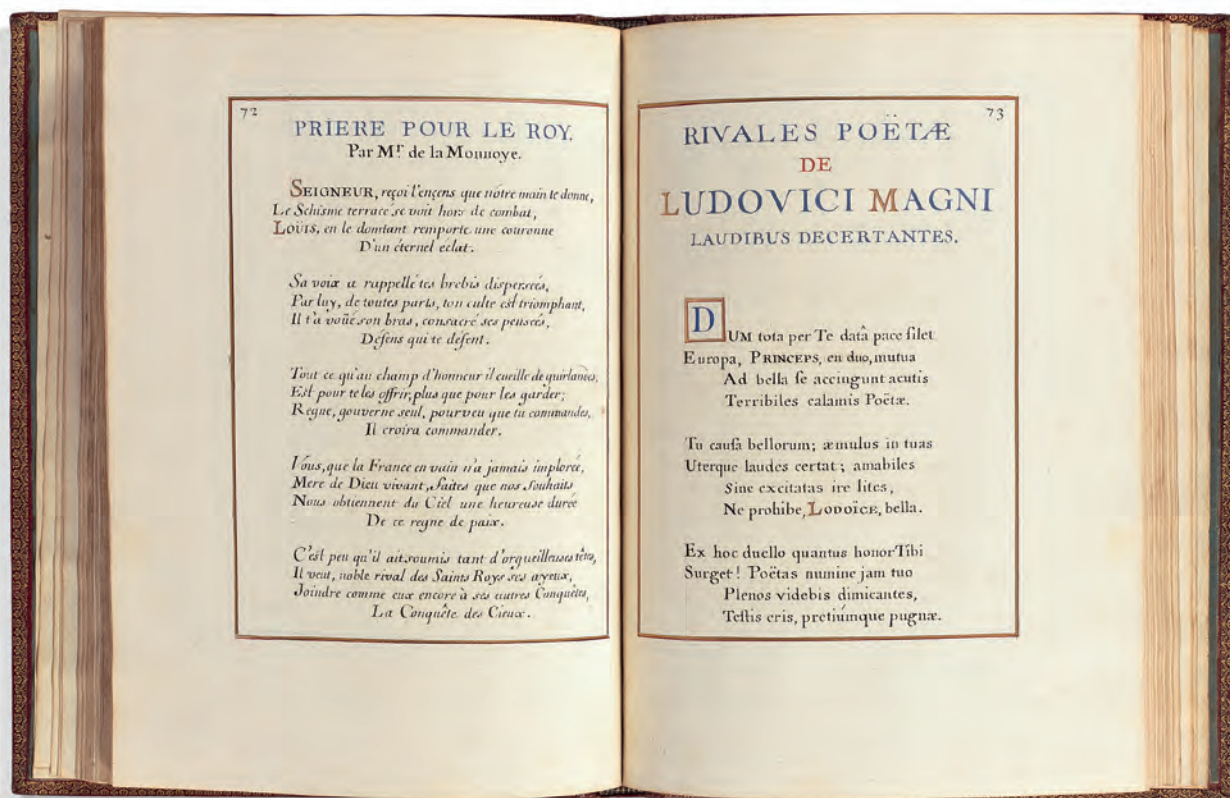 72
PRIERE POUR LE ROY.
Par Mr. de la Monnoye.
SEIGNEUR, reçoi l'encens que nôtre main te donne,
Le Schisme terracé se voit hors de combat,
LOUIS, en le domtant remporte une couronne
D'un éternel éclat.
Sa voix a rappellé tes brebis dispersées,
Par luy, de toutes parts, ton culte est triomphant,
Il t'a voüé son bras, consacré ses pensées,
Défens qui te défent.
Tout ce qu'au champ d'honneur il cueille de guirlandes,
Est pour te les offrir, plus que pour les garder;
Regne, gouverne seul, pourveu que tu commandes,
Il croira commander.
Vous, que la France en vain n'a jamais implorée,
Mere de Dieu vivant, faites que nos souhaits
Nous obtiennent du Ciel une heureuse durée
De ce regne de paix.
C'est peu qu'il ait soumis tant d'orgueilleuses têtes,
Il veut, noble rival des Saints Roys ses ayeux,
Joindre comme eux encore à ses autres Conquêtes,
La Conquête des Cieux.
73
RIVALES POËTÆ
DE
LUDOVICI MAGNI
LAUDIBUS DECERTANTES.
DUM tota per Te datâ pace silet
Europa, PRINCEPS, en duo, mutua
Ad bella se accingunt acutis
Terribiles calamis Poëtæ.
Tu causa bellorum; æmulus in tuas
Uterque laudes certat; amabiles
Sine excitatas ire lites,
Ne prohibe, LODOÏCE, bella.
Ex hoc duello quantus honor Tibi
Surget! Poëtas numine jam tuo
Plenos videbis dimicantes,
Testis eris, pretiúmque pugnæ.